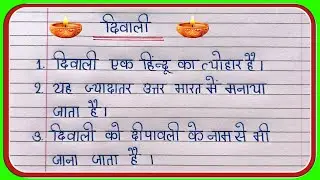 दिवाली
1. दिवाली एक हिन्दू का त्योहार है।
2. यह ज्यादातर उत्तर भारत में मनाया
जाता है।
3. दिवाली को दीपावली के नाम से भी
जाना जाता है।